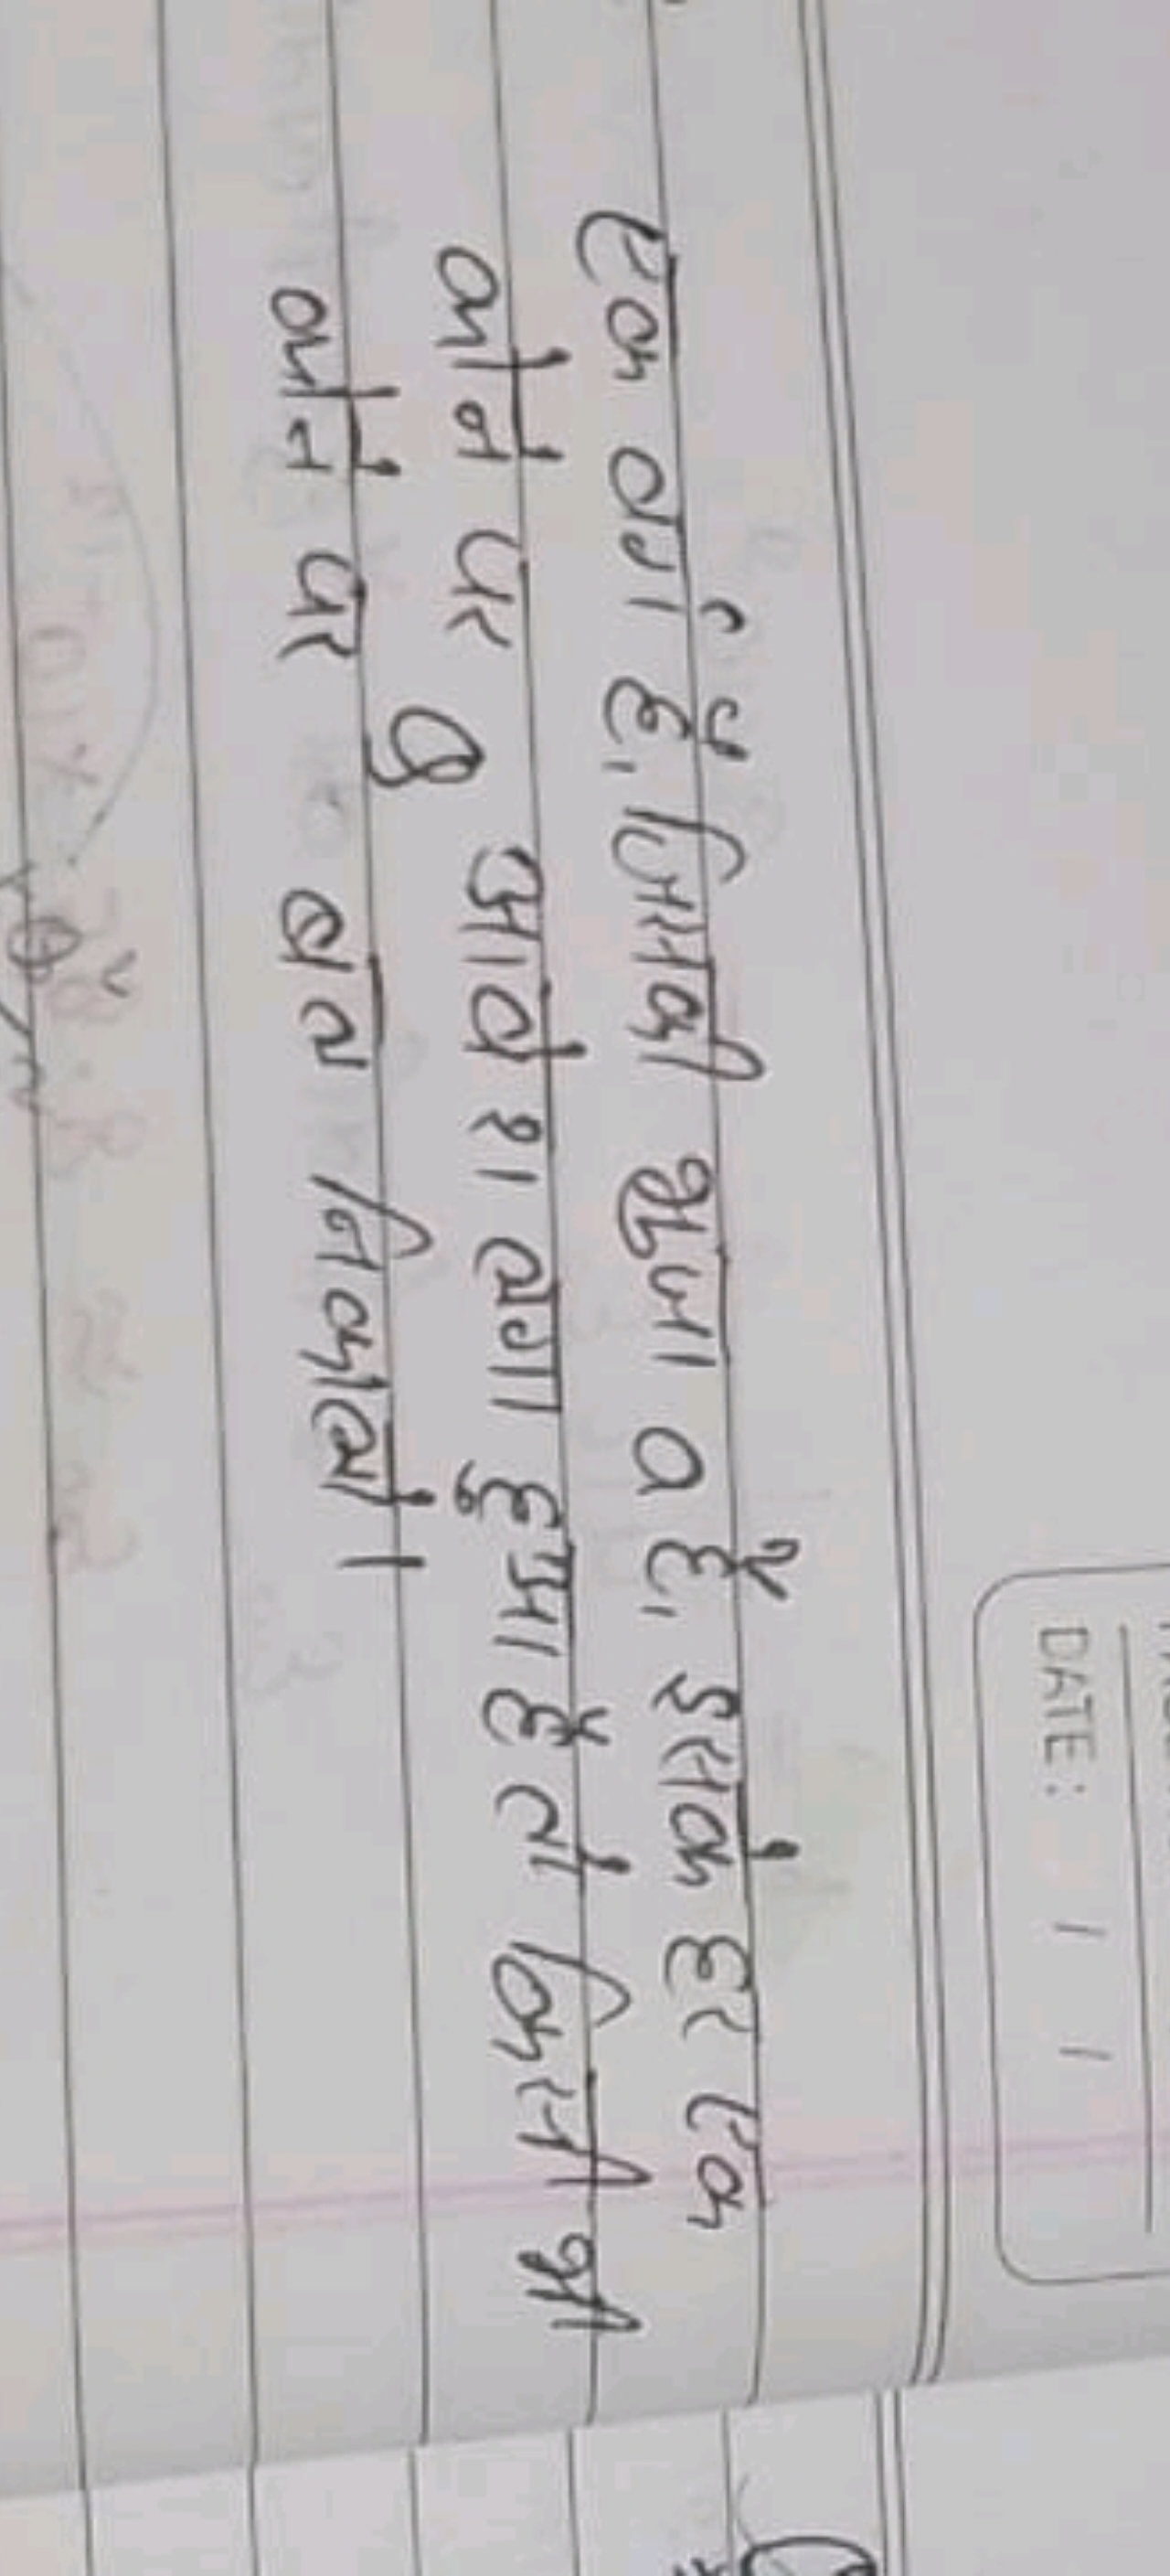 DATE: / /
एक वर्ग है, जिसकी भुजा a है, इसके हर एक
कोने पर q आवेश लगा हुआ है तो किसी भी
कोने पर बल निकालो।